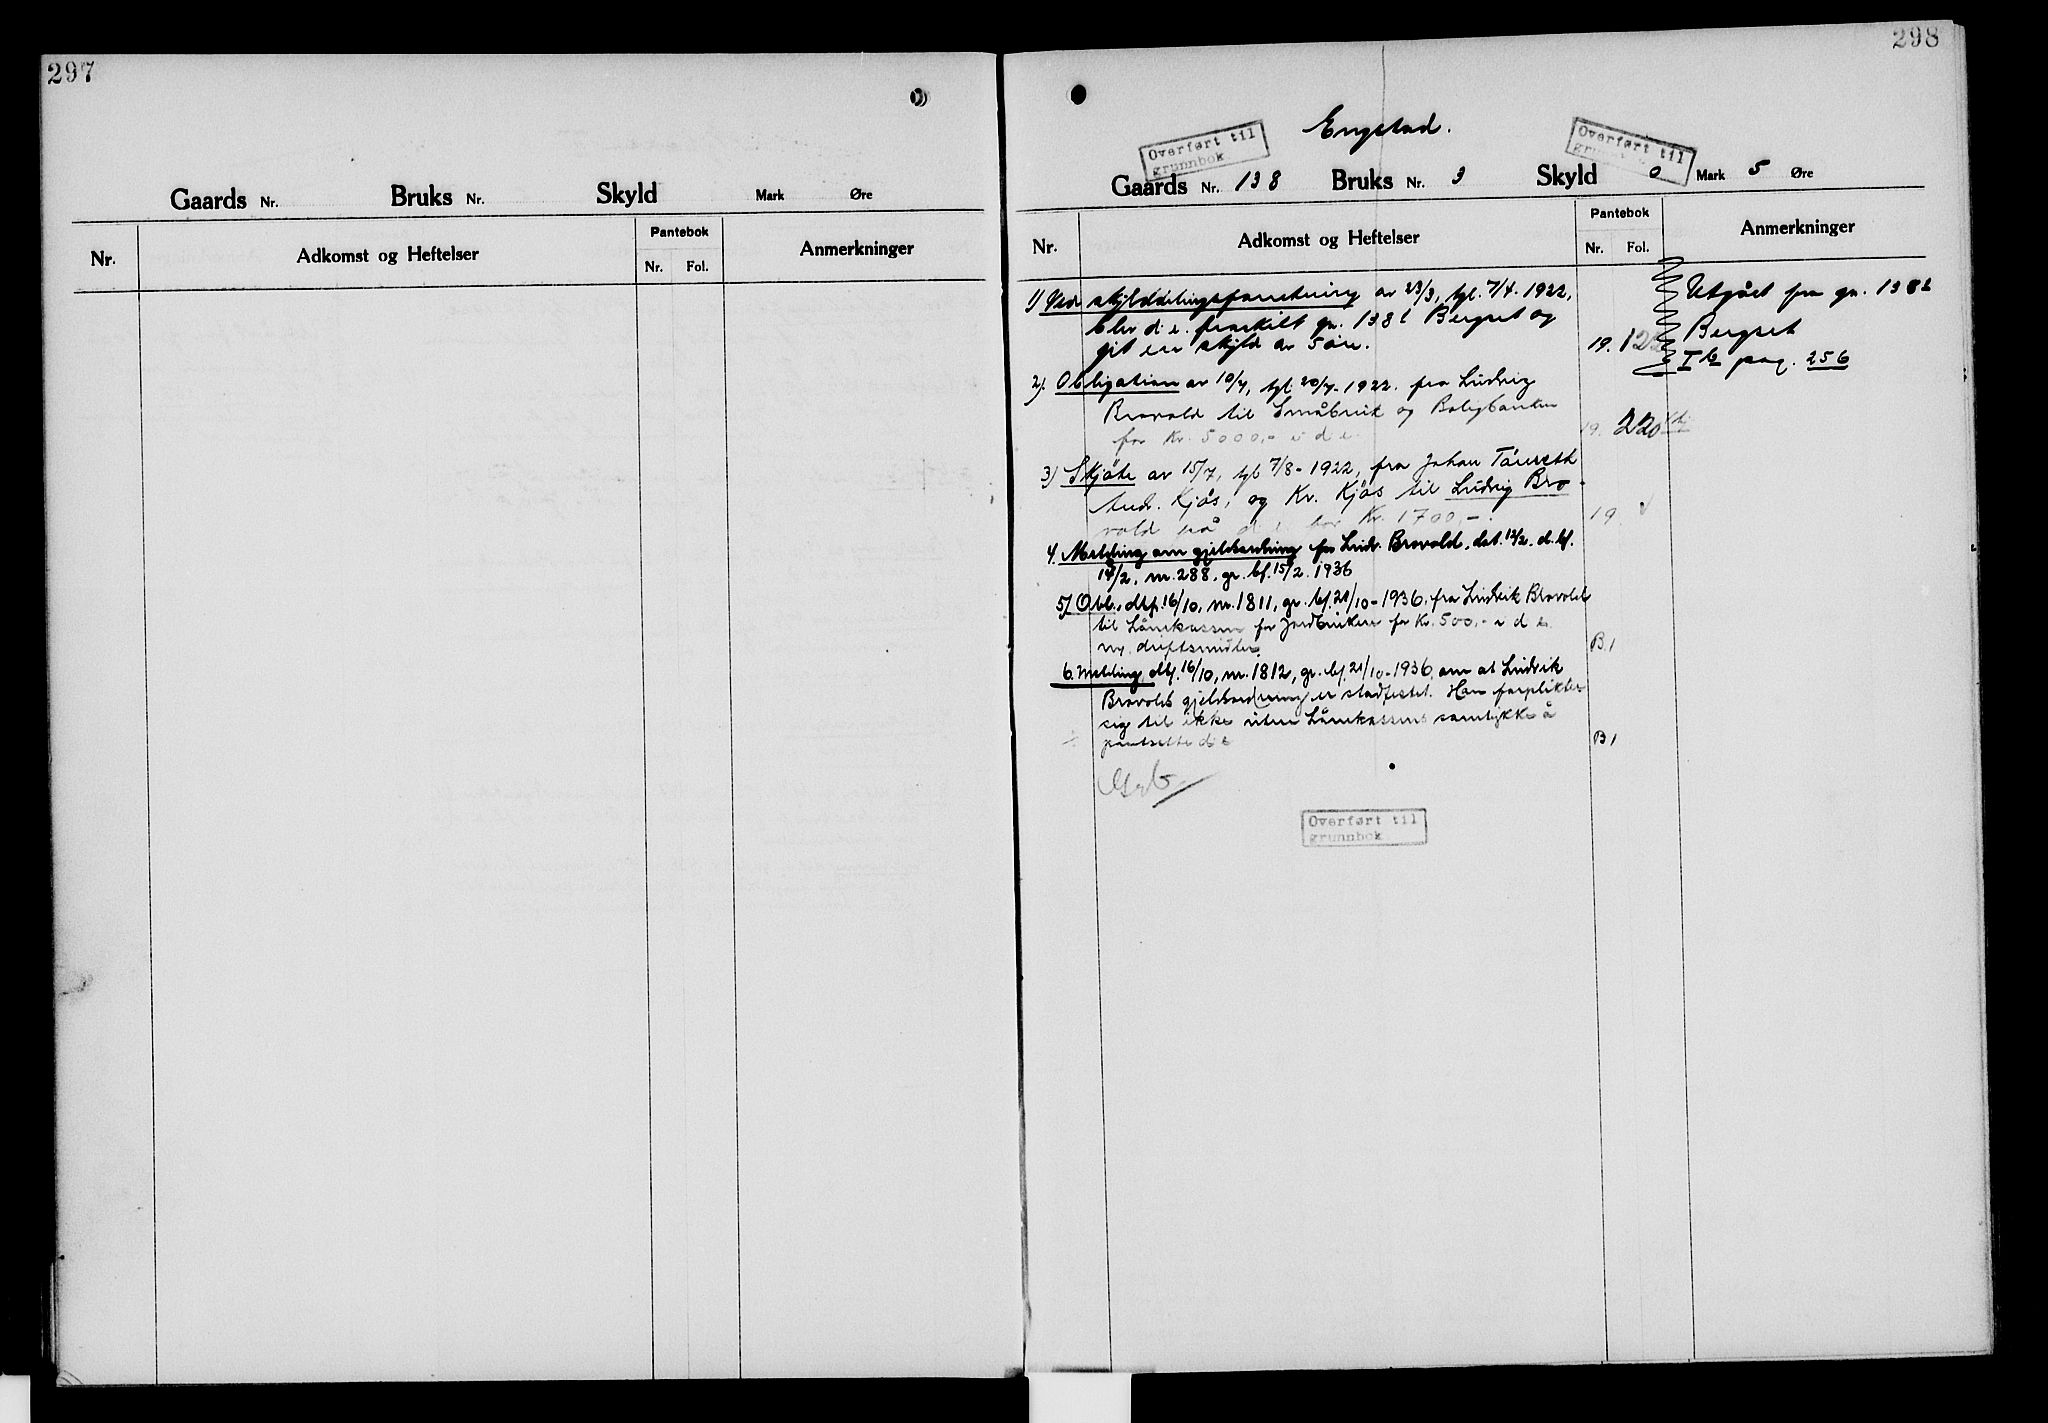 297
Gaards Nr. Bruks Nr. Skyld Mark Øre
Nr. Adkomst og Heftelser Pantebok Anmerkninger
Nr. Fol.
298
Engstad.
Overført til
grunnbok
Overført til
Gaards Nr. 138 Bruks Nr. 3 Skyld 0 Mark 5 Øre
Nr. Adkomst og Heftelser Pantebok Anmerkninger
Nr. Fol.
1) Ved skylddelingsforretning av 23/3, tgl. 7/4. 1922,
blev d. e. fraskilt gn. 138 Bergset og
git en skyld av 5 øre. 19. 122
Utgået fra gn. 138
Bergset
pag. 256
2). Obligation av 10/7, tgl. 20/7-1922. fra Ludvig
Brovold til Småbruk og Boligbanken
for Kr. 5000,- i d e. 19. 220
3) Skjøte av 15/7, tgl 7/8-1922, fra Johan
Kjøs, og Kr. Kjøs til Ludvig Bro-
vold på d. e. for Kr. 1700,-. 19
4. Melding om gjeldsordning for Ludv. Brovold, dat. 12/2. d. bf.
14/2, nr. 288, gr. bf. 15/2. 1936
5) Obl., dbf. 16/10, nr. 1811, gr. bf. 21/10-1936, fra Ludvik Brovold
til Lånekassen for Jordbrukere for Kr. 500,- i d e.
og driftsmidler. B 1
6. Melding dbf. 16/10, nr. 1812, gr. bf. 21/10-1936, om at Ludvik
Brovolds gjeldsordning er stadfestet. Han forplikter
sig til ikke uten Lånekassens samtykke å
pantsette d e B 1
Overført til
grunnbok